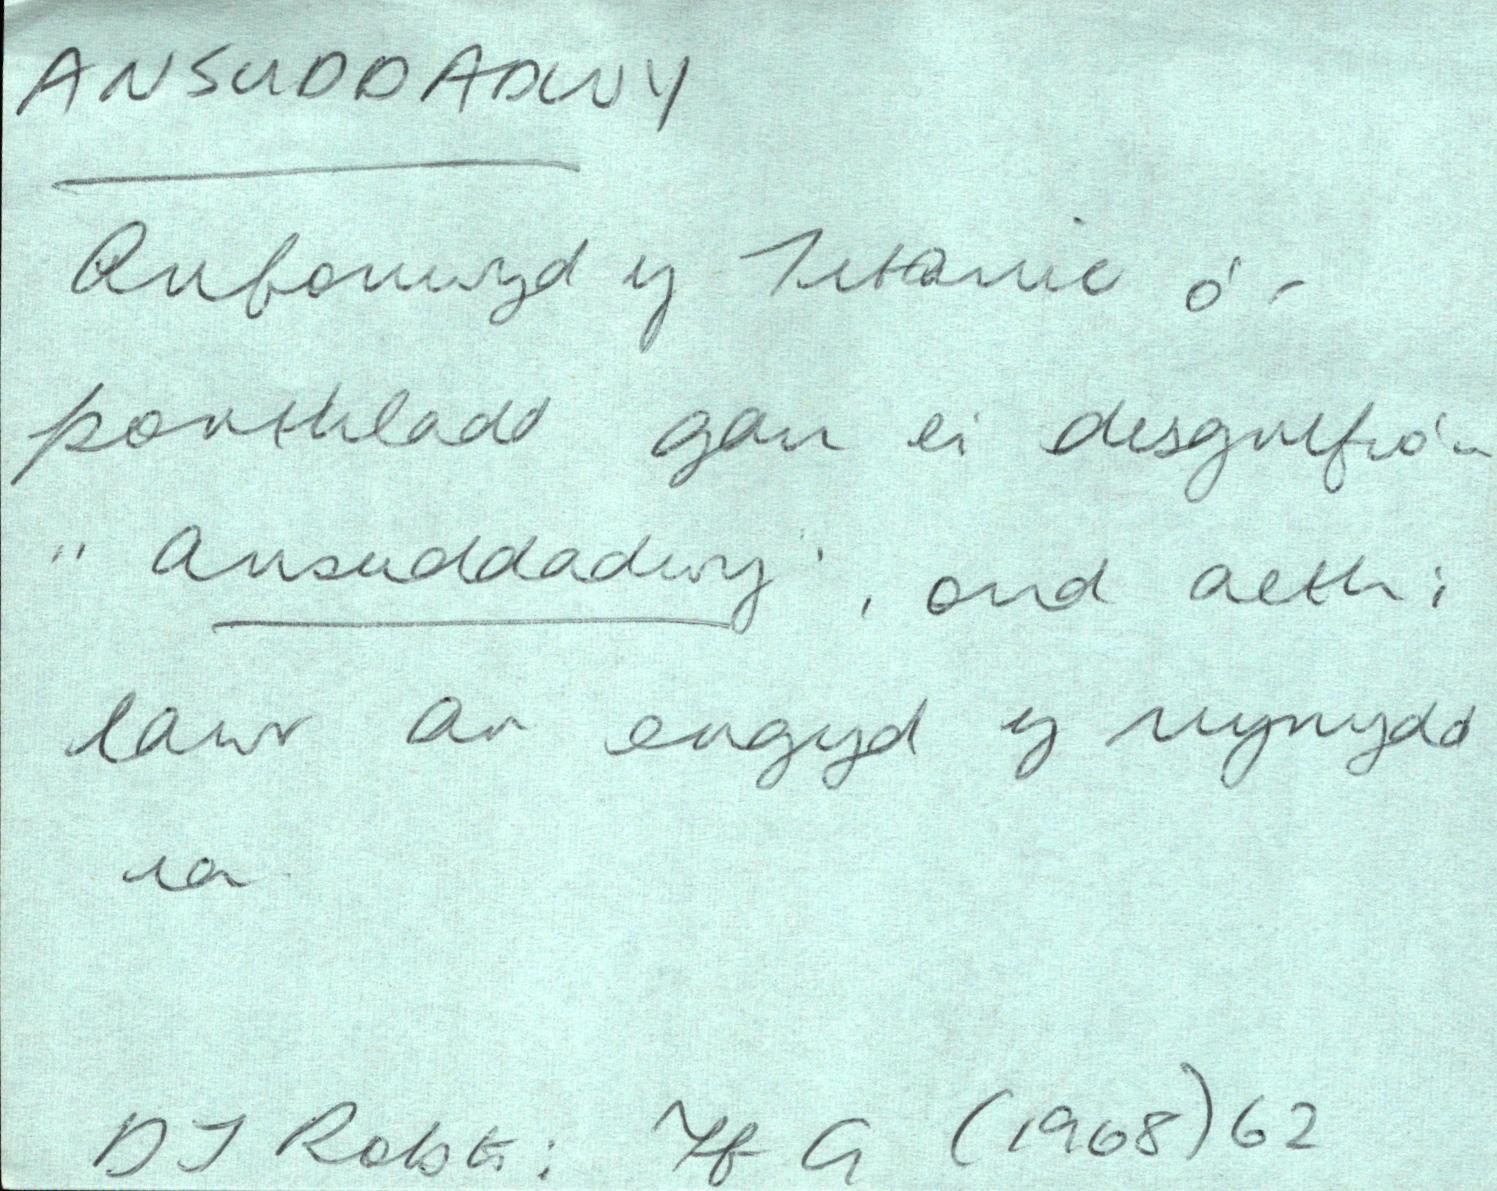 ANSUDDADWY
Anfonwyd y Titanic o'r
porthladd gan ei disgrifio'n
"ansuddadwy", ond aeth i
lawr ar ergyd y mynydd
ia
DJ Robts: Yf G (1968) 62